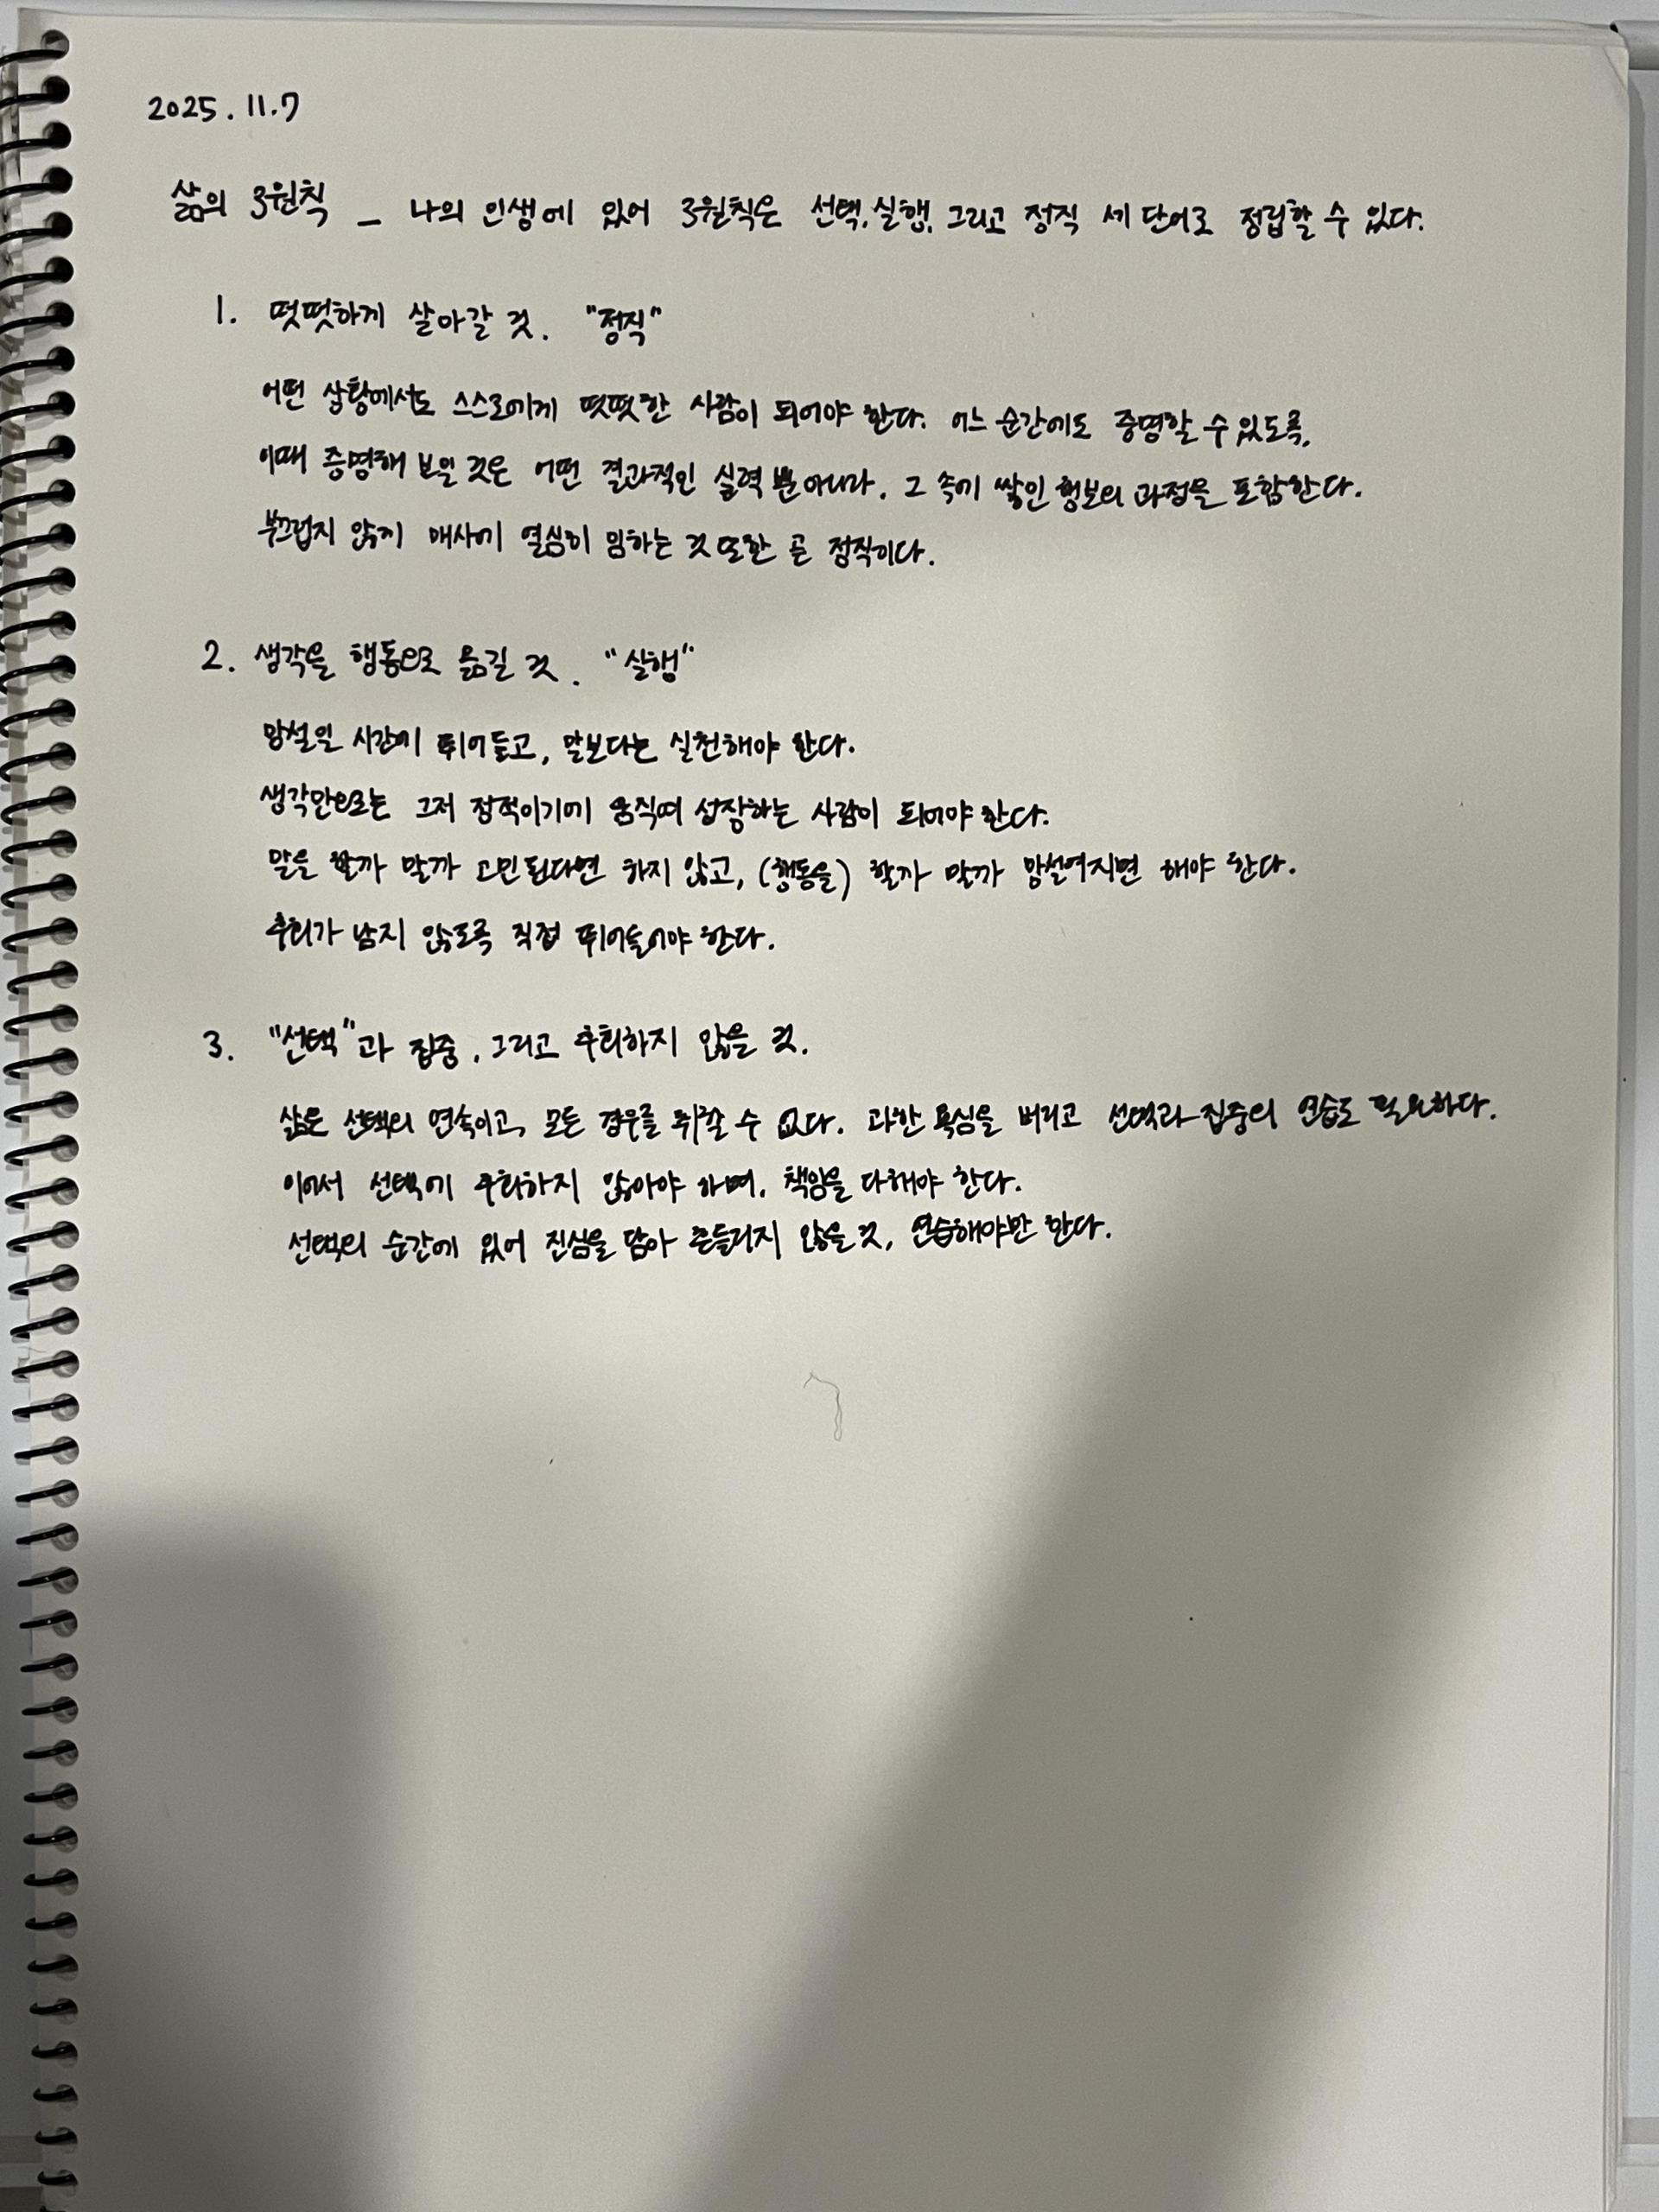 2025. 11. 7
삶의 3원칙 _ 나의 인생에 있어 3원칙은 선택, 실행, 그리고 정직 세 단어로 정립할 수 있다.
1. 떳떳하게 살아갈 것. "정직"
어떤 상황에서도 스스로에게 떳떳한 사람이 되어야 한다. 어느 순간에도 증명할 수 있도록,
이때 증명해 보일 것은 어떤 결과적인 실력 뿐 아니라, 그 속에 쌓인 행보의 과정을 포함한다.
부끄럽지 않게 매사에 열심히 임하는 것 또한 곧 정직이다.
2. 생각을 행동으로 옮길 것. "실행"
망설일 시간에 뛰어들고, 말보다는 실천해야 한다.
생각만으로는 그저 정적이기에 움직여 성장하는 사람이 되어야 한다.
말을 할까 말까 고민된다면 하지 않고, (행동을) 할까 말까 망설여지면 해야 한다.
후회가 남지 않도록 직접 뛰어들어야 한다.
3. "선택"과 집중, 그리고 후회하지 않을 것.
삶은 선택의 연속이고, 모든 경우를 취할 수 없다. 과한 욕심을 버리고 선택과 집중의 연습도 필요하다.
이어서 선택에 후회하지 않아야 하며, 책임을 다해야 한다.
선택의 순간에 있어 진심을 담아 흔들리지 않을 것, 연습해야만 한다.